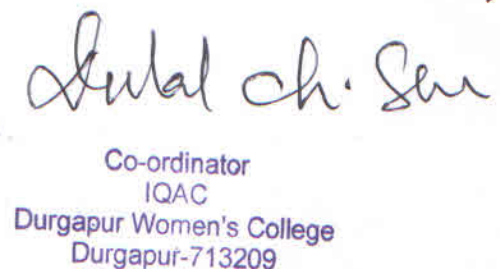 Dulal ch. Sen
Co-ordinator
IQAC
Durgapur Women's College
Durgapur-713209